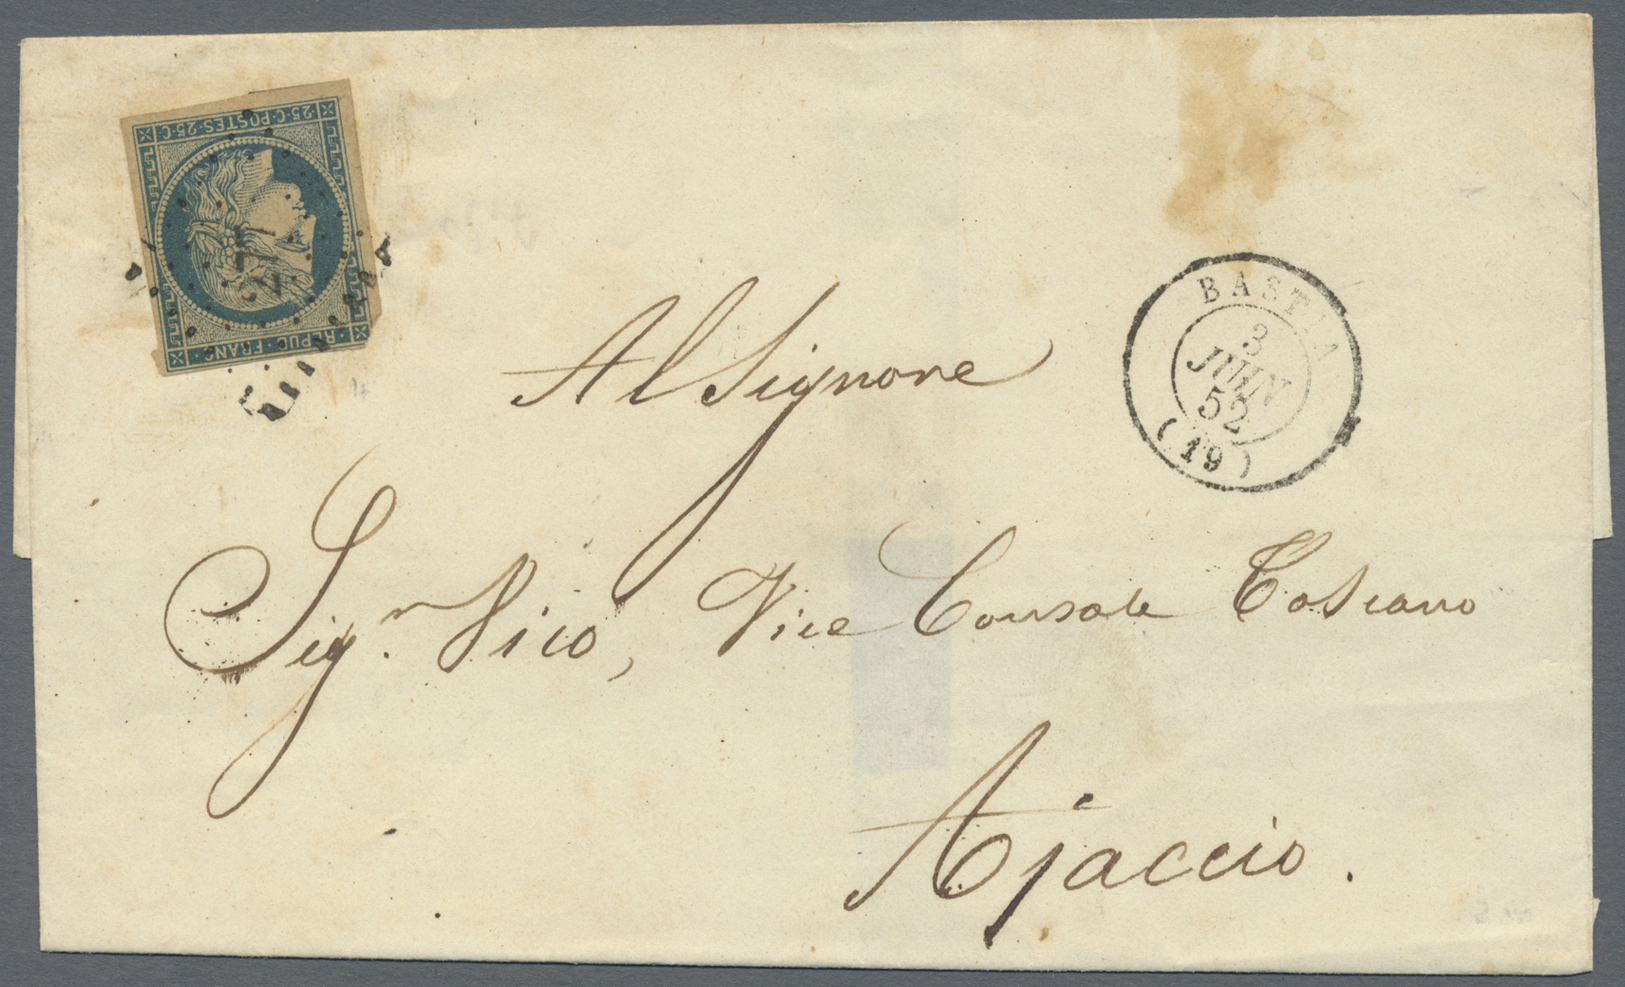 25·C·POSTES·25·C
REPUB·FRANC
277
BASTIA
3
JUIN
52
(19)
Al Signore
Sig.r Vico, Vice Console Toscano
Ajaccio.